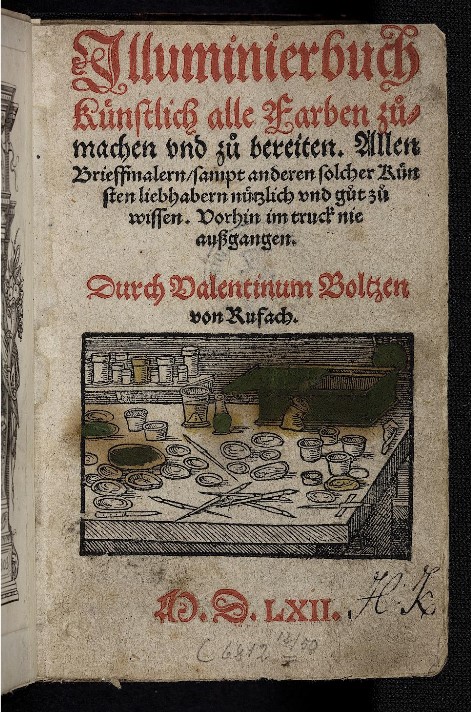 Illuminierbuch
Künstlich alle Farben zů⸗
machen vnd zů bereiten. Allen
Brieffmalern/sampt anderen solcher Kün
sten liebhabern nützlich vnd gůt zů
wissen. Vorhin im truck nie
außgangen.
Durch Valentinum Boltzen
von Rufach.
M. D. LXII.
H. K
C 6812 12/50